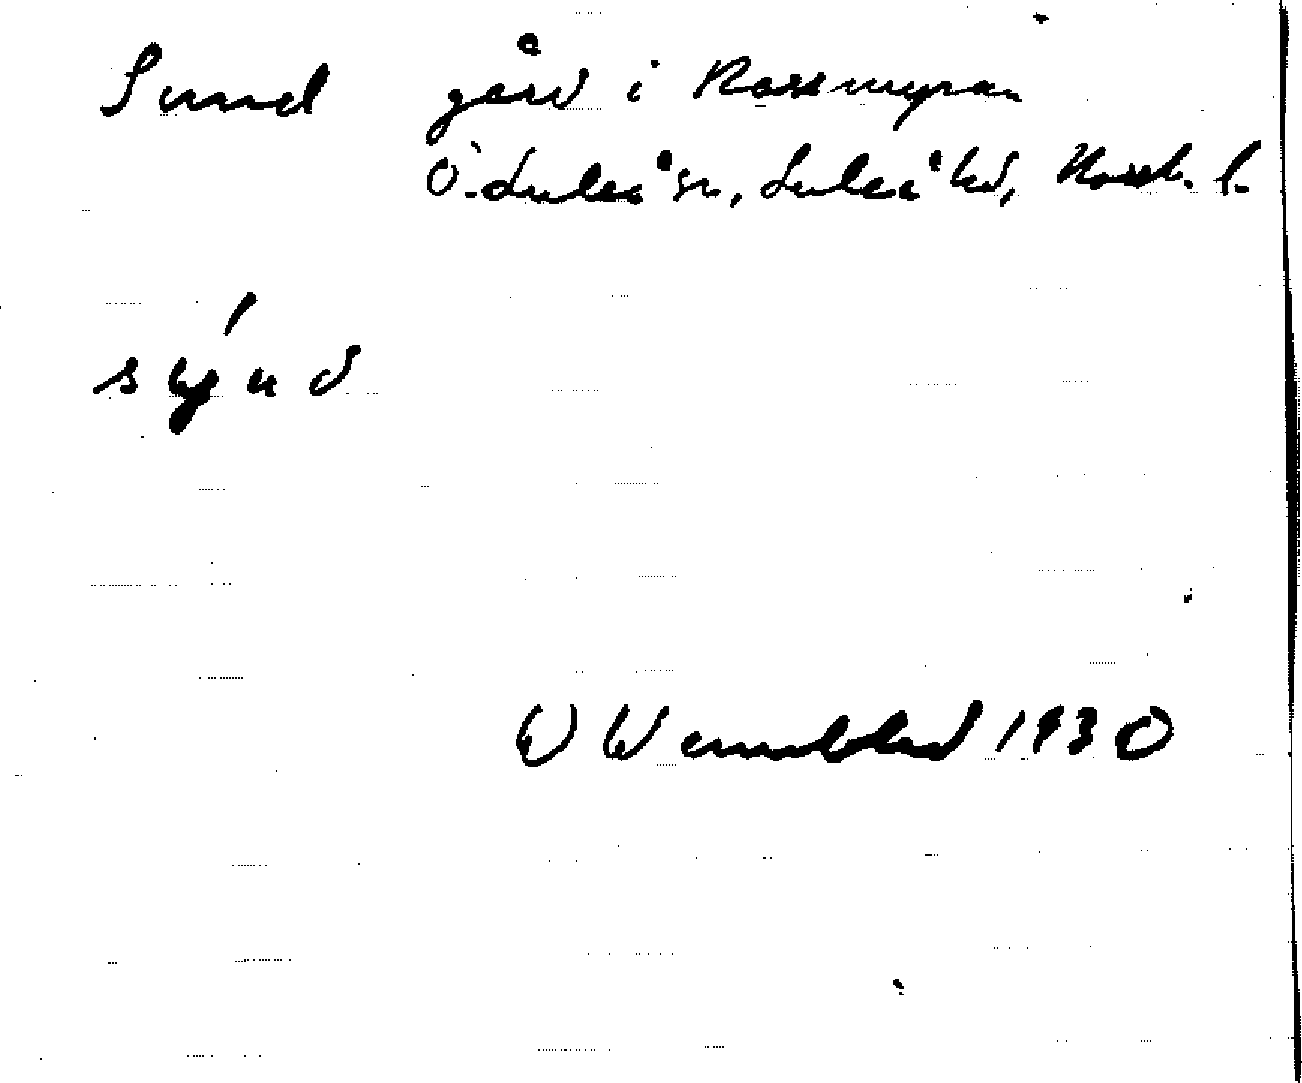 Sund gård i Rossmyran
Ö. Luleå sn, Luleå hd, Norrb. l.
sýnd
W Wennblad 1930